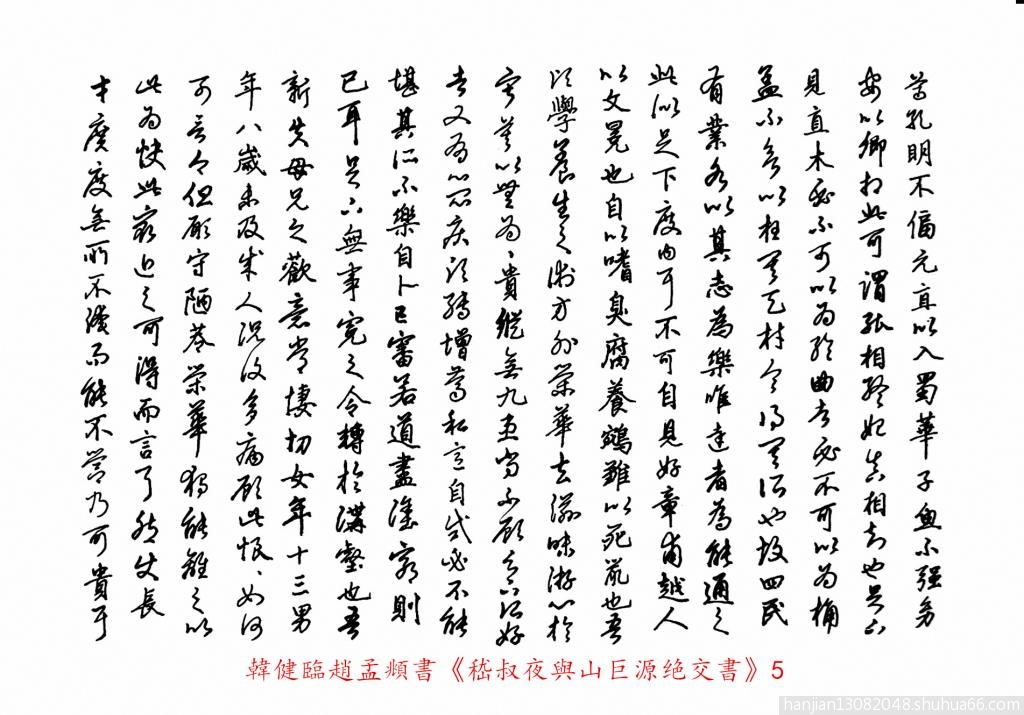 葛孔明不偪元直以入蜀華子魚不强幼
安以卿相此可謂能相終始真相知也足下
見直木必不可以為輪曲者必不可以為桷
蓋不欲以枉其天材令得其所也故四民
有業各以其志為樂唯達者為能通之
此似足下度内耳不可自見好章甫越人
以文冕也自以嗜臭腐養鵷雛以死鼠也吾
頃學養生之術方外榮華去滋味游心於
寂寞以無為〻貴縱無九患尚不顧足下所好
者又為心悶疾頃轉增篤私意自試必不能
堪其所不樂自卜已審若道盡塗窮則
已耳足下無事寃之令轉於溝壑也吾
新失母兄之歡意常悽切女年十三男
年八歲未及成人況復多病顧此恨〻如何
可言今但願守陋巷榮華獨能離之以
此為快此最近之可得而言耳然使長
才廣度無所不淹而能不營乃可貴耳
韓健臨趙孟頫書《嵇叔夜與山巨源绝交書》5
hanjian13082048.shuhua66.com